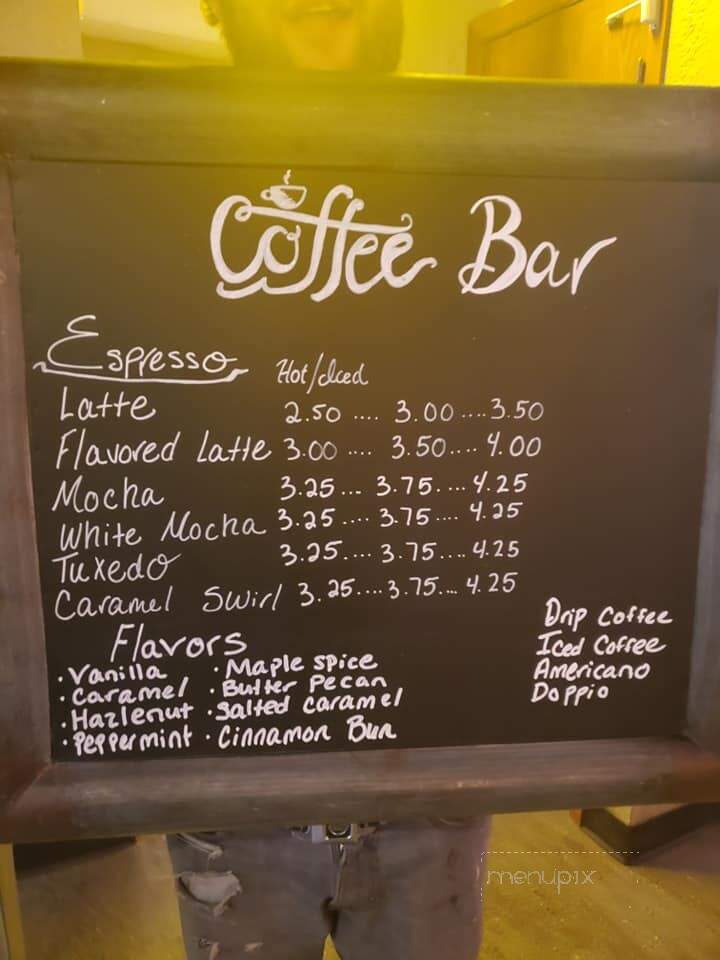 Coffee Bar
Espresso Hot/Iced
Latte 2.50 .... 3.00 .... 3.50
Flavored Latte 3.00 .... 3.50.... 4.00
Mocha 3.25... 3.75.... 4.25
White Mocha 3.25.... 3.75.... 4.25
Tuxedo 3.25.... 3.75.... 4.25
Caramel Swirl 3.25.... 3.75.... 4.25
Flavors
· Vanilla · Maple spice
· Caramel · Butter Pecan
· Hazlenut · Salted Caramel
· Peppermint · Cinnamon Bun
Drip Coffee
Iced Coffee
Americano
Doppio
menupix